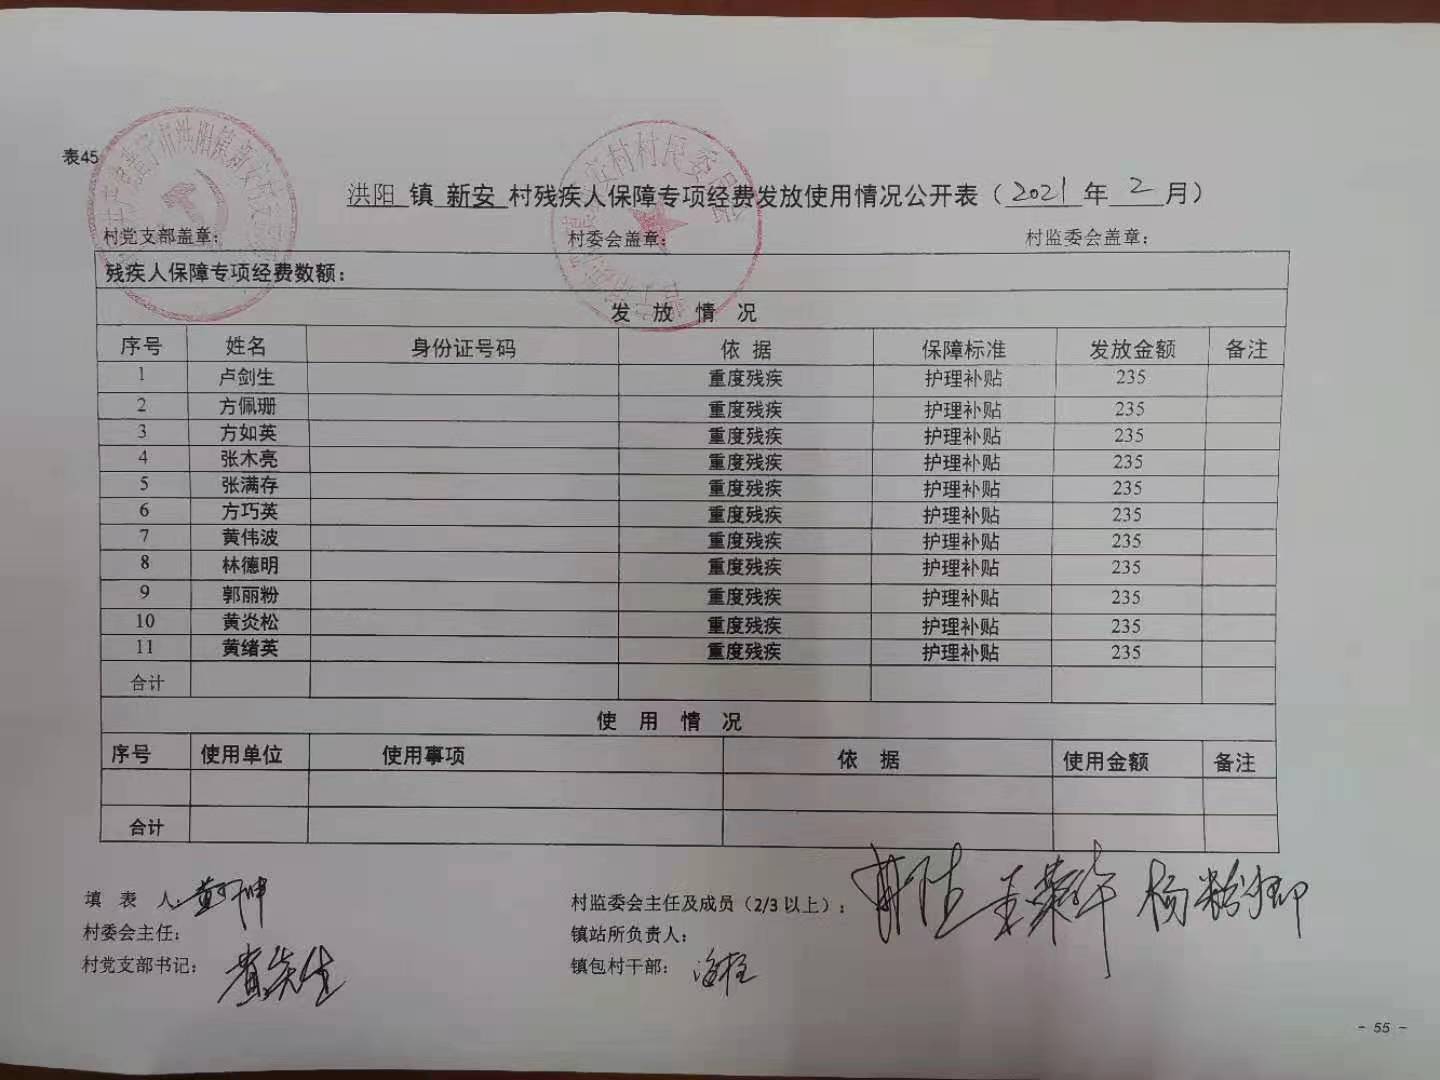 表45
洪阳 镇 新安 村残疾人保障专项经费发放使用情况公开表（2021 年 2 月）
村党支部盖章： 村委会盖章： 村监委会盖章：
残疾人保障专项经费数额：
发 放 情 况
序号 姓名 身份证号码 依 据 保障标准 发放金额 备注
1 卢剑生 重度残疾 护理补贴 235
2 方佩珊 重度残疾 护理补贴 235
3 方如英 重度残疾 护理补贴 235
4 张木亮 重度残疾 护理补贴 235
5 张满存 重度残疾 护理补贴 235
6 方巧英 重度残疾 护理补贴 235
7 黄伟波 重度残疾 护理补贴 235
8 林德明 重度残疾 护理补贴 235
9 郭丽粉 重度残疾 护理补贴 235
10 黄炎松 重度残疾 护理补贴 235
11 黄绪英 重度残疾 护理补贴 235
合计
使 用 情 况
序号 使用单位 使用事项 依 据 使用金额 备注
合计
填 表 人： 村监委会主任及成员（2/3 以上）：
村委会主任： 镇站所负责人：
村党支部书记： 黄先生 镇包村干部：
- 55 -